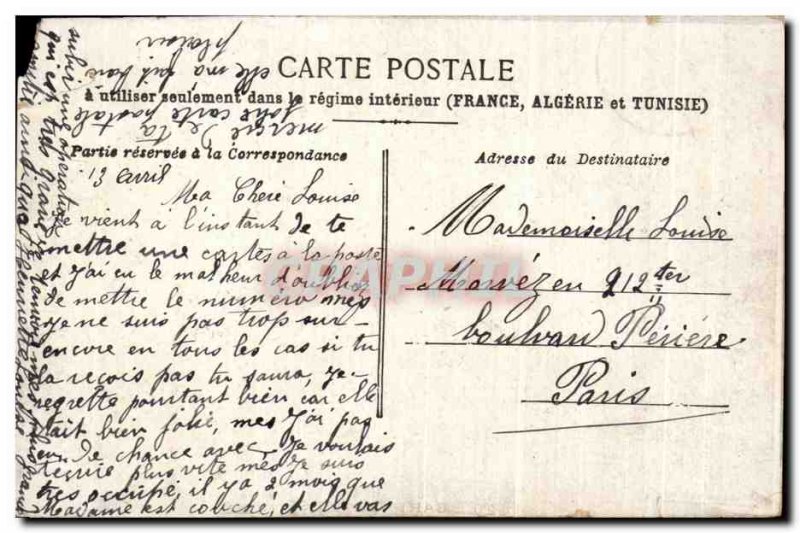 CARTE POSTALE
à utiliser seulement dans le régime intérieur (FRANCE, ALGÉRIE et TUNISIE)
Partie réservée à la Correspondance
13 avril
Ma Cherè Louise
Je vient à l'instant de te
mettre une cartes à la poste
et j'ai eu le malheur d'oublier
de mettre le numéro mes
Je ne suis pas trop sur
encore en tous les cas si tu
la reçois pas tu saura, je
regrette pourtant bien car elle
etait bien jolie, mes j'ai pas
eu de chance avec, Je voulais
plus vite mes je suis
tres occupé, il y a 2 mois que
Madame est couché, et elle vas
subir une opération
qui est très grave
merçie de ta
jolie carte postale
elle ma fait bien
plaisir
Adresse du Destinataire
Mademoiselle Louise
Morvézen 212 ter
boulvard Périère
Paris
CPAPHIL